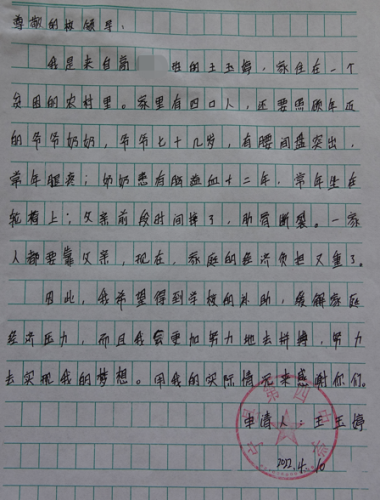 尊敬的校领导:
我是来自高 班的王玉婷,家住在一个
贫困的农村里。家里有四口人,还要照顾年迈
的爷爷奶奶,爷爷七十几岁,有腰间盘突出,
常年腿疼;奶奶患有脑血十二年,常年坐在
轮椅上;父亲前段时间摔了,肋骨断裂。一家
人都要靠父亲,现在,家庭的经济负担又重了。
因此,我希望得到学校的补助,缓解家庭
经济压力,而且我会更加努力地去拼搏,努力
去实现我的梦想。用我的实际情况来感谢你们。
申请人:王玉婷
2022.4.10
第四中学